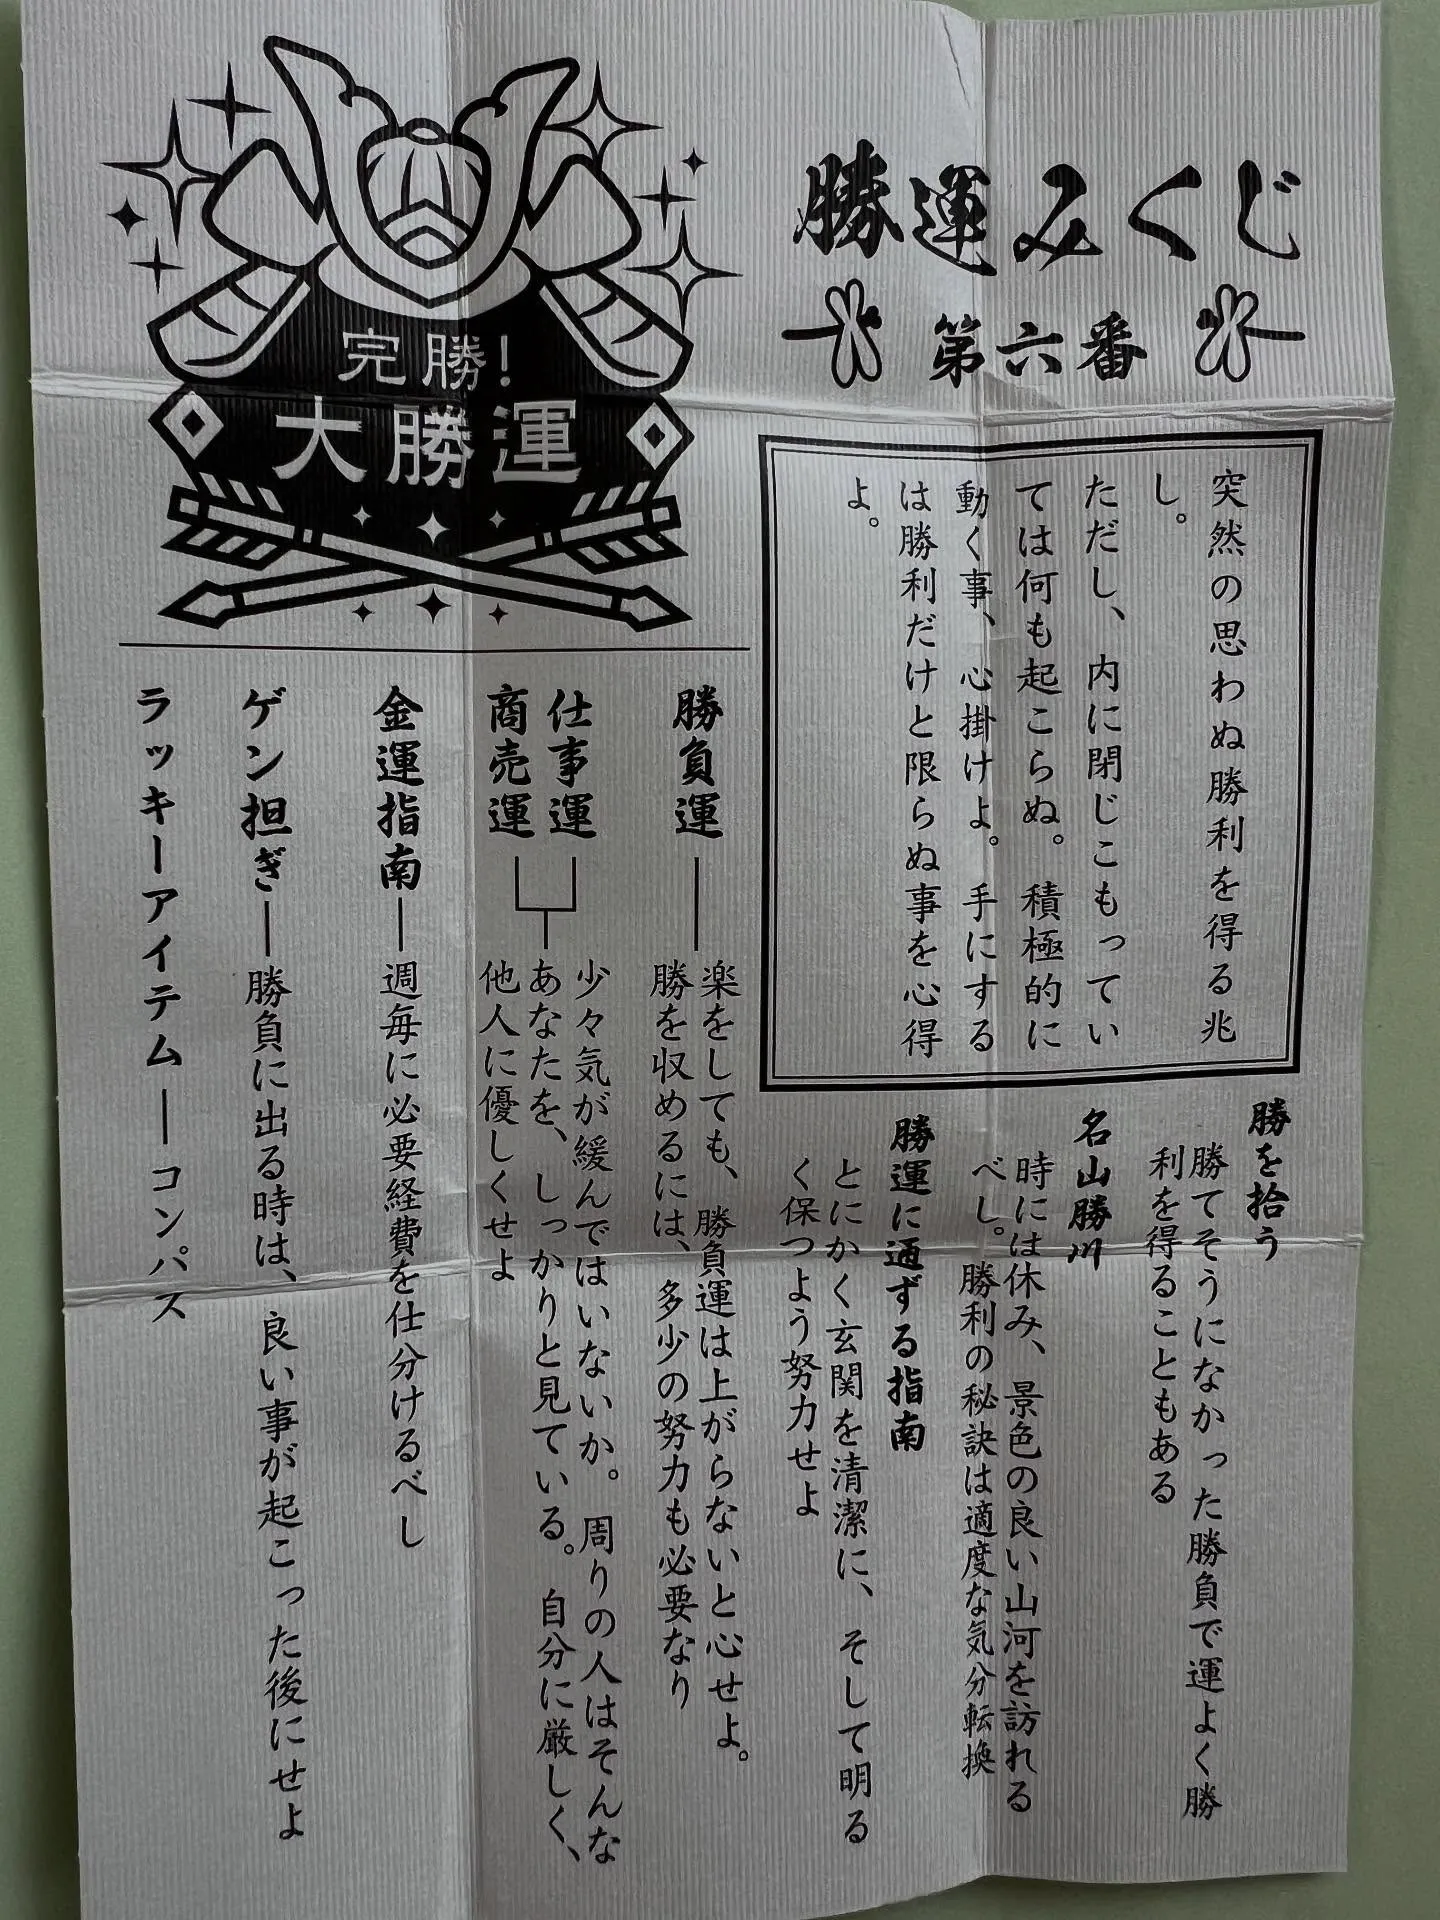 勝運みくじ
第六番
突然の思わぬ勝利を得る兆
し。
ただし、内に閉じこもってい
ては何も起こらぬ。積極的に
動く事、心掛けよ。手にする
は勝利だけと限らぬ事を心得
よ。
勝を拾う
勝てそうになかった勝負で運よく勝
利を得ることもある
名山勝川
時には休み、景色の良い山河を訪れる
べし。勝利の秘訣は適度な気分転換
勝運に通ずる指南
とにかく玄関を清潔に、そして明る
く保つよう努力せよ
完勝!
大勝運
勝負運
楽をしても、勝負運は上がらないと心せよ。
勝を収めるには、多少の努力も必要なり
仕事運
商売運
少々気が緩んではいないか。周りの人はそんな
あなたを、しっかりと見ている。自分に厳しく、
他人に優しくせよ
金運指南―週毎に必要経費を仕分けるべし
ゲン担ぎ―勝負に出る時は、良い事が起こった後にせよ
ラッキーアイテム―コンパス